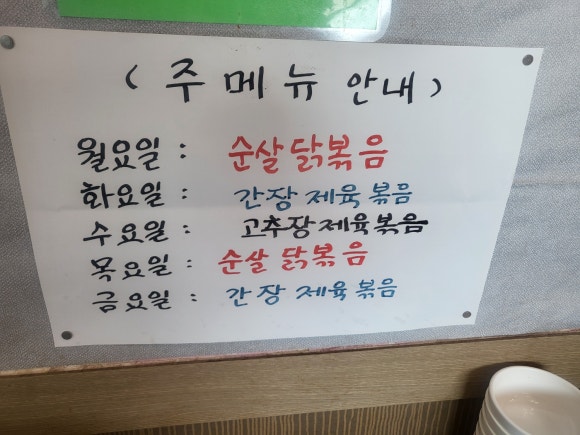 (주메뉴 안내)
월요일 : 순살닭볶음
화요일 : 간장제육볶음
수요일 : 고추장제육볶음
목요일 : 순살 닭볶음
금요일 : 간장제육볶음